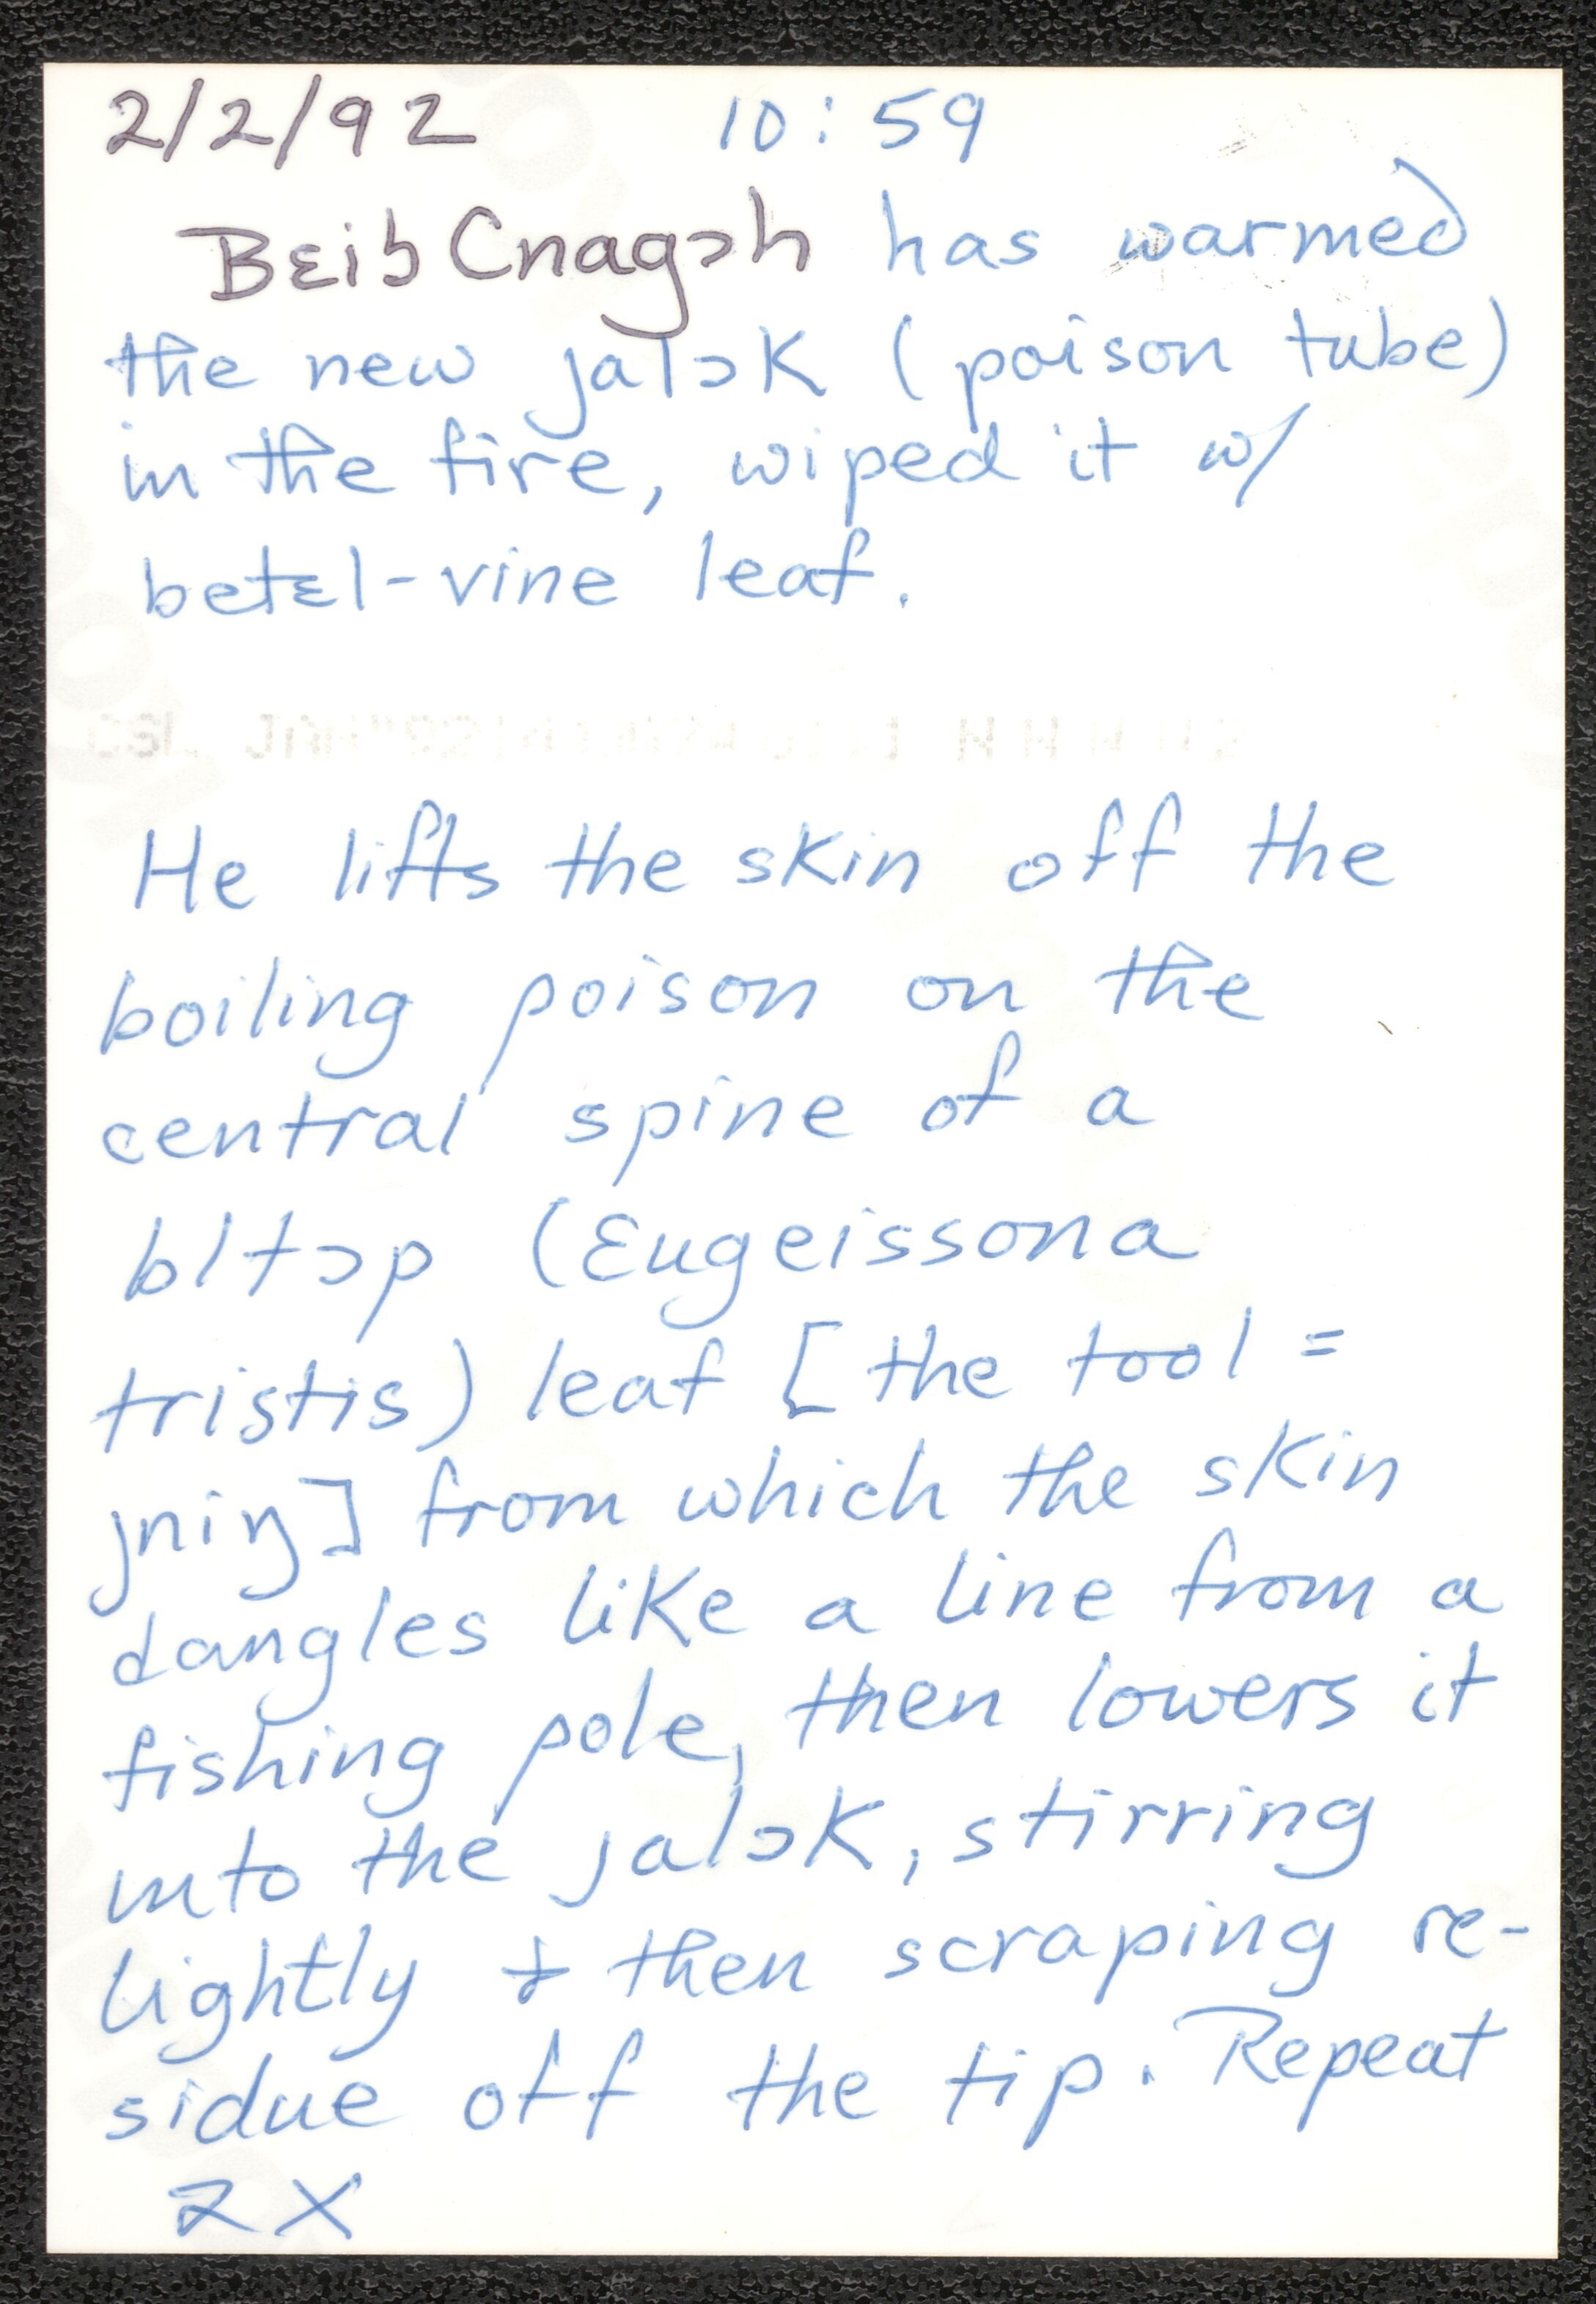 2/2/92 10:59
Bɛib Cnagɔh has warmed
the new jalɔk (poison tube)
in the fire, wiped it w/
betɛl-vine leaf.
He lifts the skin off the
boiling poison on the
central spine of a
bltɔp (Eugeissona
tristis) leaf [the tool =
jniŋ] from which the skin
dangles like a line from a
fishing pole, then lowers it
into the jalɔk, stirring
lightly & then scraping re-
sidue off the tip. Repeat
2X